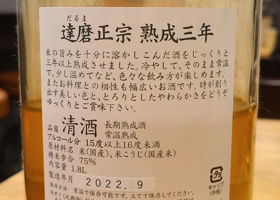 だるま
達磨正宗 熟成三年
米の旨みを十分に溶かしこんだ酒をじっくりと
三年以上熟成させました。冷やして、そのまま常温
で、少し温めてなど、色々な飲み方が楽しめます。
またお料理との相性も幅広いお酒です。時が創り
出す美しい色と、とろりとしたやわらかさをどうぞ
ゆっくりとご賞味下さい。
品目 清酒 長期熟成酒
常温熟成
アルコール分 15度以上16度未満
原材料名 米(国産)、米こうじ(国産米)
精米歩合 75%
内容量 1.8L
製造年月 2022.9
直射日光を避け常温で
保存可能です。立てて保存してください。
キャップ